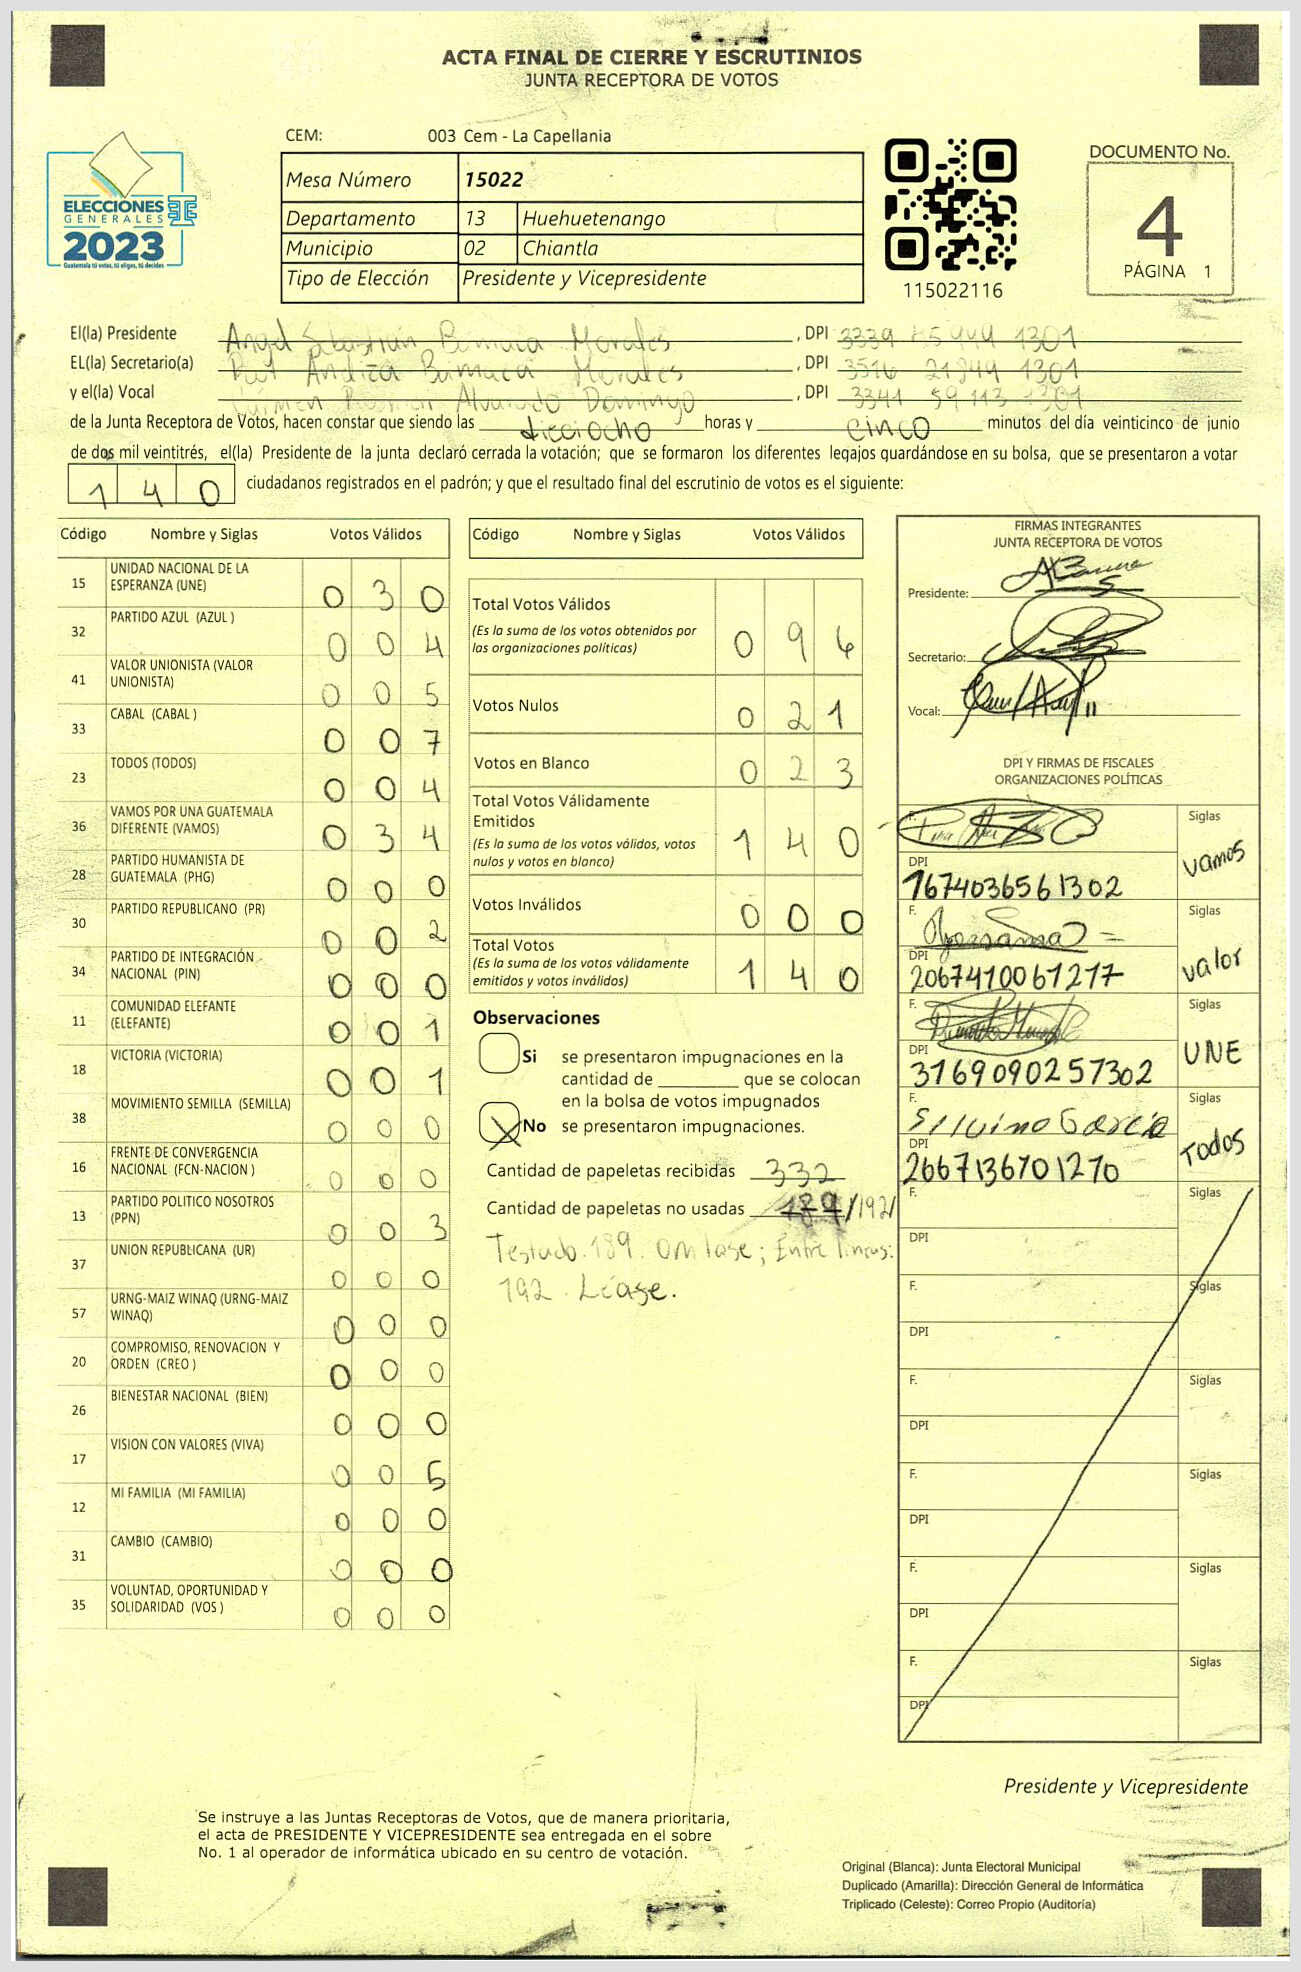 ACTA FINAL DE CIERRE Y ESCRUTINIOS
JUNTA RECEPTORA DE VOTOS
CEM: 003 Cem - La Capellania
ELECCIONES
GENERALES
2023
Guatemala tú votas, tú eliges, tú decides
Mesa Número 15022
Departamento 13 Huehuetenango
Municipio 02 Chiantla
Tipo de Elección Presidente y Vicepresidente
115022116
DOCUMENTO No.
4
PÁGINA 1
El(la) Presidente Angel Sebastián Morales, DPI 3339 1301
EL(la) Secretario(a) Morales, DPI 3516 21849 1301
y el(la) Vocal Carmen Alvarado Domingo, DPI 3341 59113 1301
de la Junta Receptora de Votos, hacen constar que siendo las dieciocho horas y cinco minutos del día veinticinco de junio
de dos mil veintitrés, el(la) Presidente de la junta declaró cerrada la votación; que se formaron los diferentes legajos guardándose en su bolsa, que se presentaron a votar
1 4 0 ciudadanos registrados en el padrón; y que el resultado final del escrutinio de votos es el siguiente:
Código Nombre y Siglas Votos Válidos
15 UNIDAD NACIONAL DE LA ESPERANZA (UNE) 0 3 0
32 PARTIDO AZUL (AZUL ) 0 0 4
41 VALOR UNIONISTA (VALOR UNIONISTA) 0 0 5
33 CABAL (CABAL ) 0 0 7
23 TODOS (TODOS) 0 0 4
36 VAMOS POR UNA GUATEMALA DIFERENTE (VAMOS) 0 3 4
28 PARTIDO HUMANISTA DE GUATEMALA (PHG) 0 0 0
30 PARTIDO REPUBLICANO (PR) 0 0 2
34 PARTIDO DE INTEGRACIÓN NACIONAL (PIN) 0 0 0
11 COMUNIDAD ELEFANTE (ELEFANTE) 0 0 1
18 VICTORIA (VICTORIA) 0 0 1
38 MOVIMIENTO SEMILLA (SEMILLA) 0 0 0
16 FRENTE DE CONVERGENCIA NACIONAL (FCN-NACION ) 0 0 0
13 PARTIDO POLITICO NOSOTROS (PPN) 0 0 3
37 UNION REPUBLICANA (UR) 0 0 0
57 URNG-MAIZ WINAQ (URNG-MAIZ WINAQ) 0 0 0
20 COMPROMISO, RENOVACION Y ORDEN (CREO ) 0 0 0
26 BIENESTAR NACIONAL (BIEN) 0 0 0
17 VISION CON VALORES (VIVA) 0 0 5
12 MI FAMILIA (MI FAMILIA) 0 0 0
31 CAMBIO (CAMBIO) 0 0 0
35 VOLUNTAD, OPORTUNIDAD Y SOLIDARIDAD (VOS ) 0 0 0
Código Nombre y Siglas Votos Válidos
Total Votos Válidos 0 9 6
(Es la suma de los votos obtenidos por
las organizaciones políticas)
Votos Nulos 0 2 1
Votos en Blanco 0 2 3
Total Votos Válidamente
Emitidos 1 4 0
(Es la suma de los votos válidos, votos
nulos y votos en blanco)
Votos Inválidos 0 0 0
Total Votos 1 4 0
(Es la suma de los votos válidamente
emitidos y votos inválidos)
Observaciones
Si se presentaron impugnaciones en la
cantidad de ________ que se colocan
en la bolsa de votos impugnados
No se presentaron impugnaciones.
Cantidad de papeletas recibidas 332
Cantidad de papeletas no usadas 189/192/
Testado. 189. Omitase; Entre lineas:
192. Léase.
FIRMAS INTEGRANTES
JUNTA RECEPTORA DE VOTOS
Presidente:
Secretario:
Vocal:
DPI Y FIRMAS DE FISCALES
ORGANIZACIONES POLÍTICAS
F. Siglas vamos
DPI 1674036561302
F. Siglas valor
DPI 2067410061217
F. Siglas UNE
DPI 3169090257302
F. Silvino García Siglas TODOS
DPI 2667136701270
F. Siglas
DPI
F. Siglas
DPI
F. Siglas
DPI
F. Siglas
DPI
F. Siglas
DPI
F. Siglas
DPI
Presidente y Vicepresidente
Se instruye a las Juntas Receptoras de Votos, que de manera prioritaria,
el acta de PRESIDENTE Y VICEPRESIDENTE sea entregada en el sobre
No. 1 al operador de informática ubicado en su centro de votación.
Original (Blanca): Junta Electoral Municipal
Duplicado (Amarilla): Dirección General de Informática
Triplicado (Celeste): Correo Propio (Auditoría)